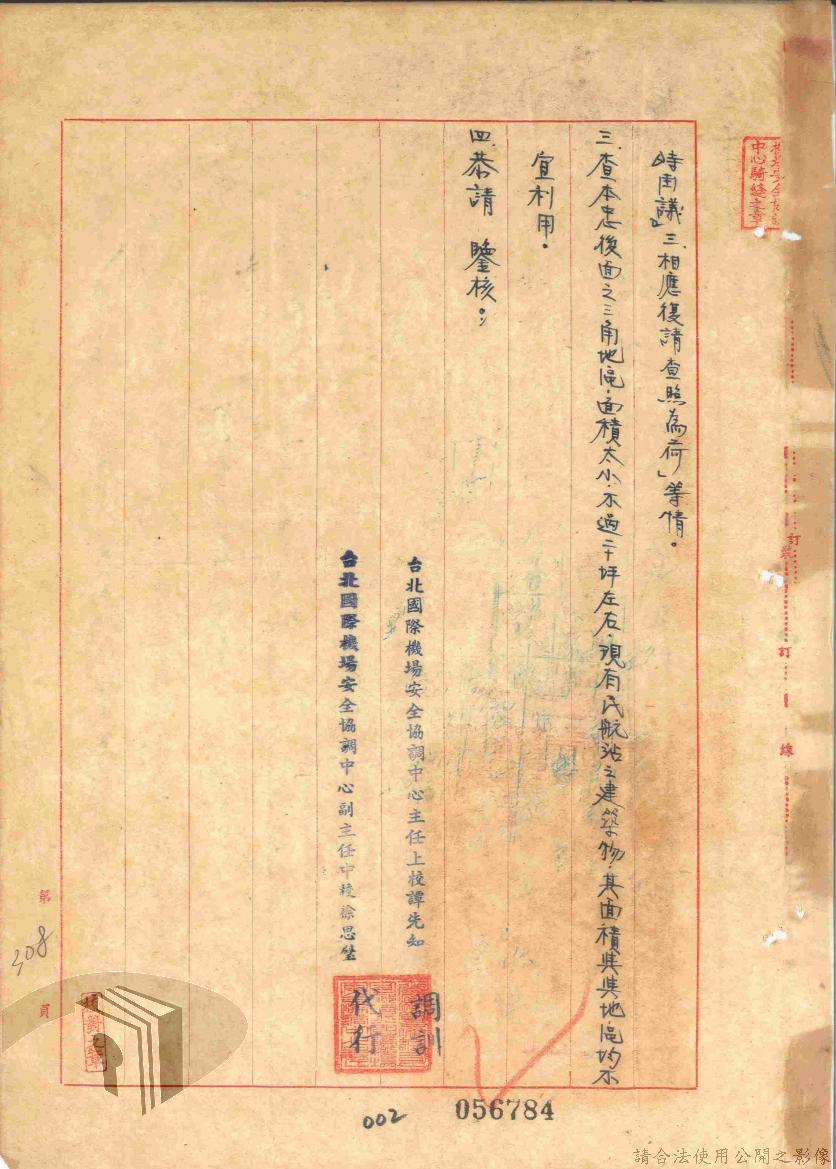 時再議』三.相應復請查照為荷」等情。
三.查本忠後面之三角地區.面積太小.不過二十坪左右.現有民航站之建築物.其面積與其地區均不
宜利用。
四.恭請 鑒核。
台北國際機場安全協調中心主任上校譚先知
調訓
台北國際機場安全協調中心副主任中校徐思
代行
中心騎縫之章
訂
裝
訂
線
第
308
頁
002
056784
請合法使用公開之影像